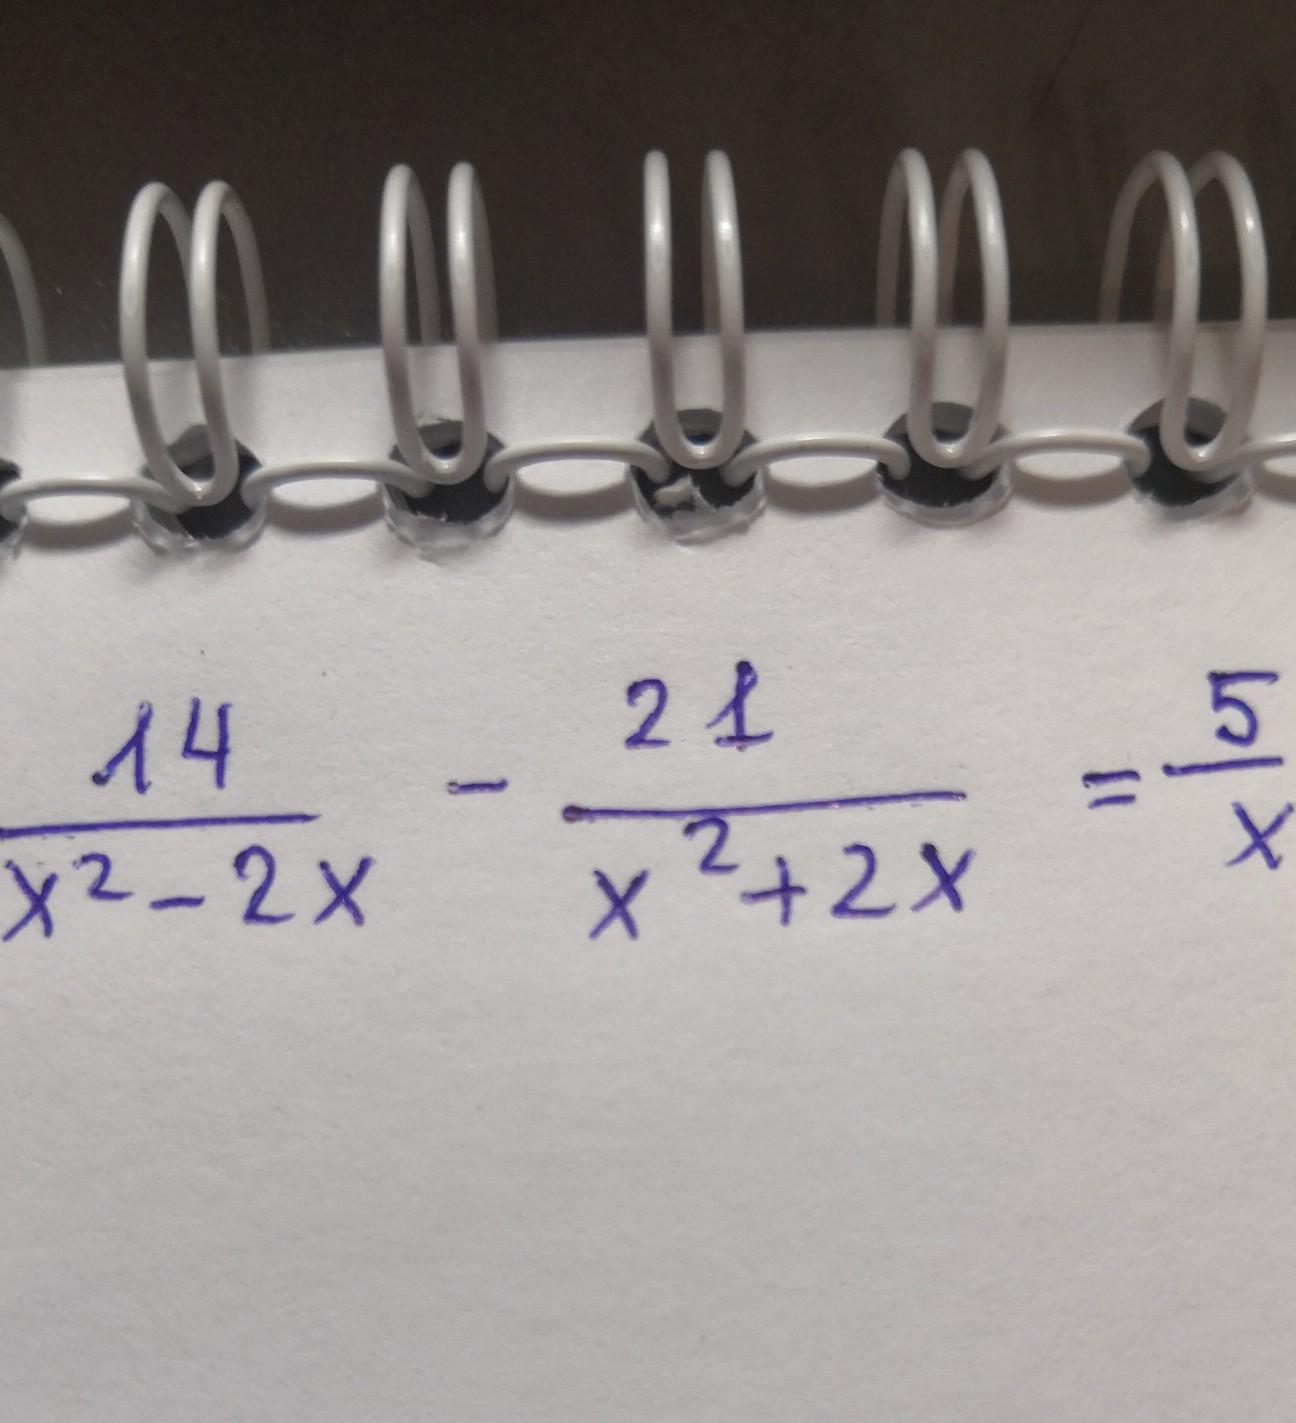 14/(x²-2x) - 21/(x²+2x) = 5/x